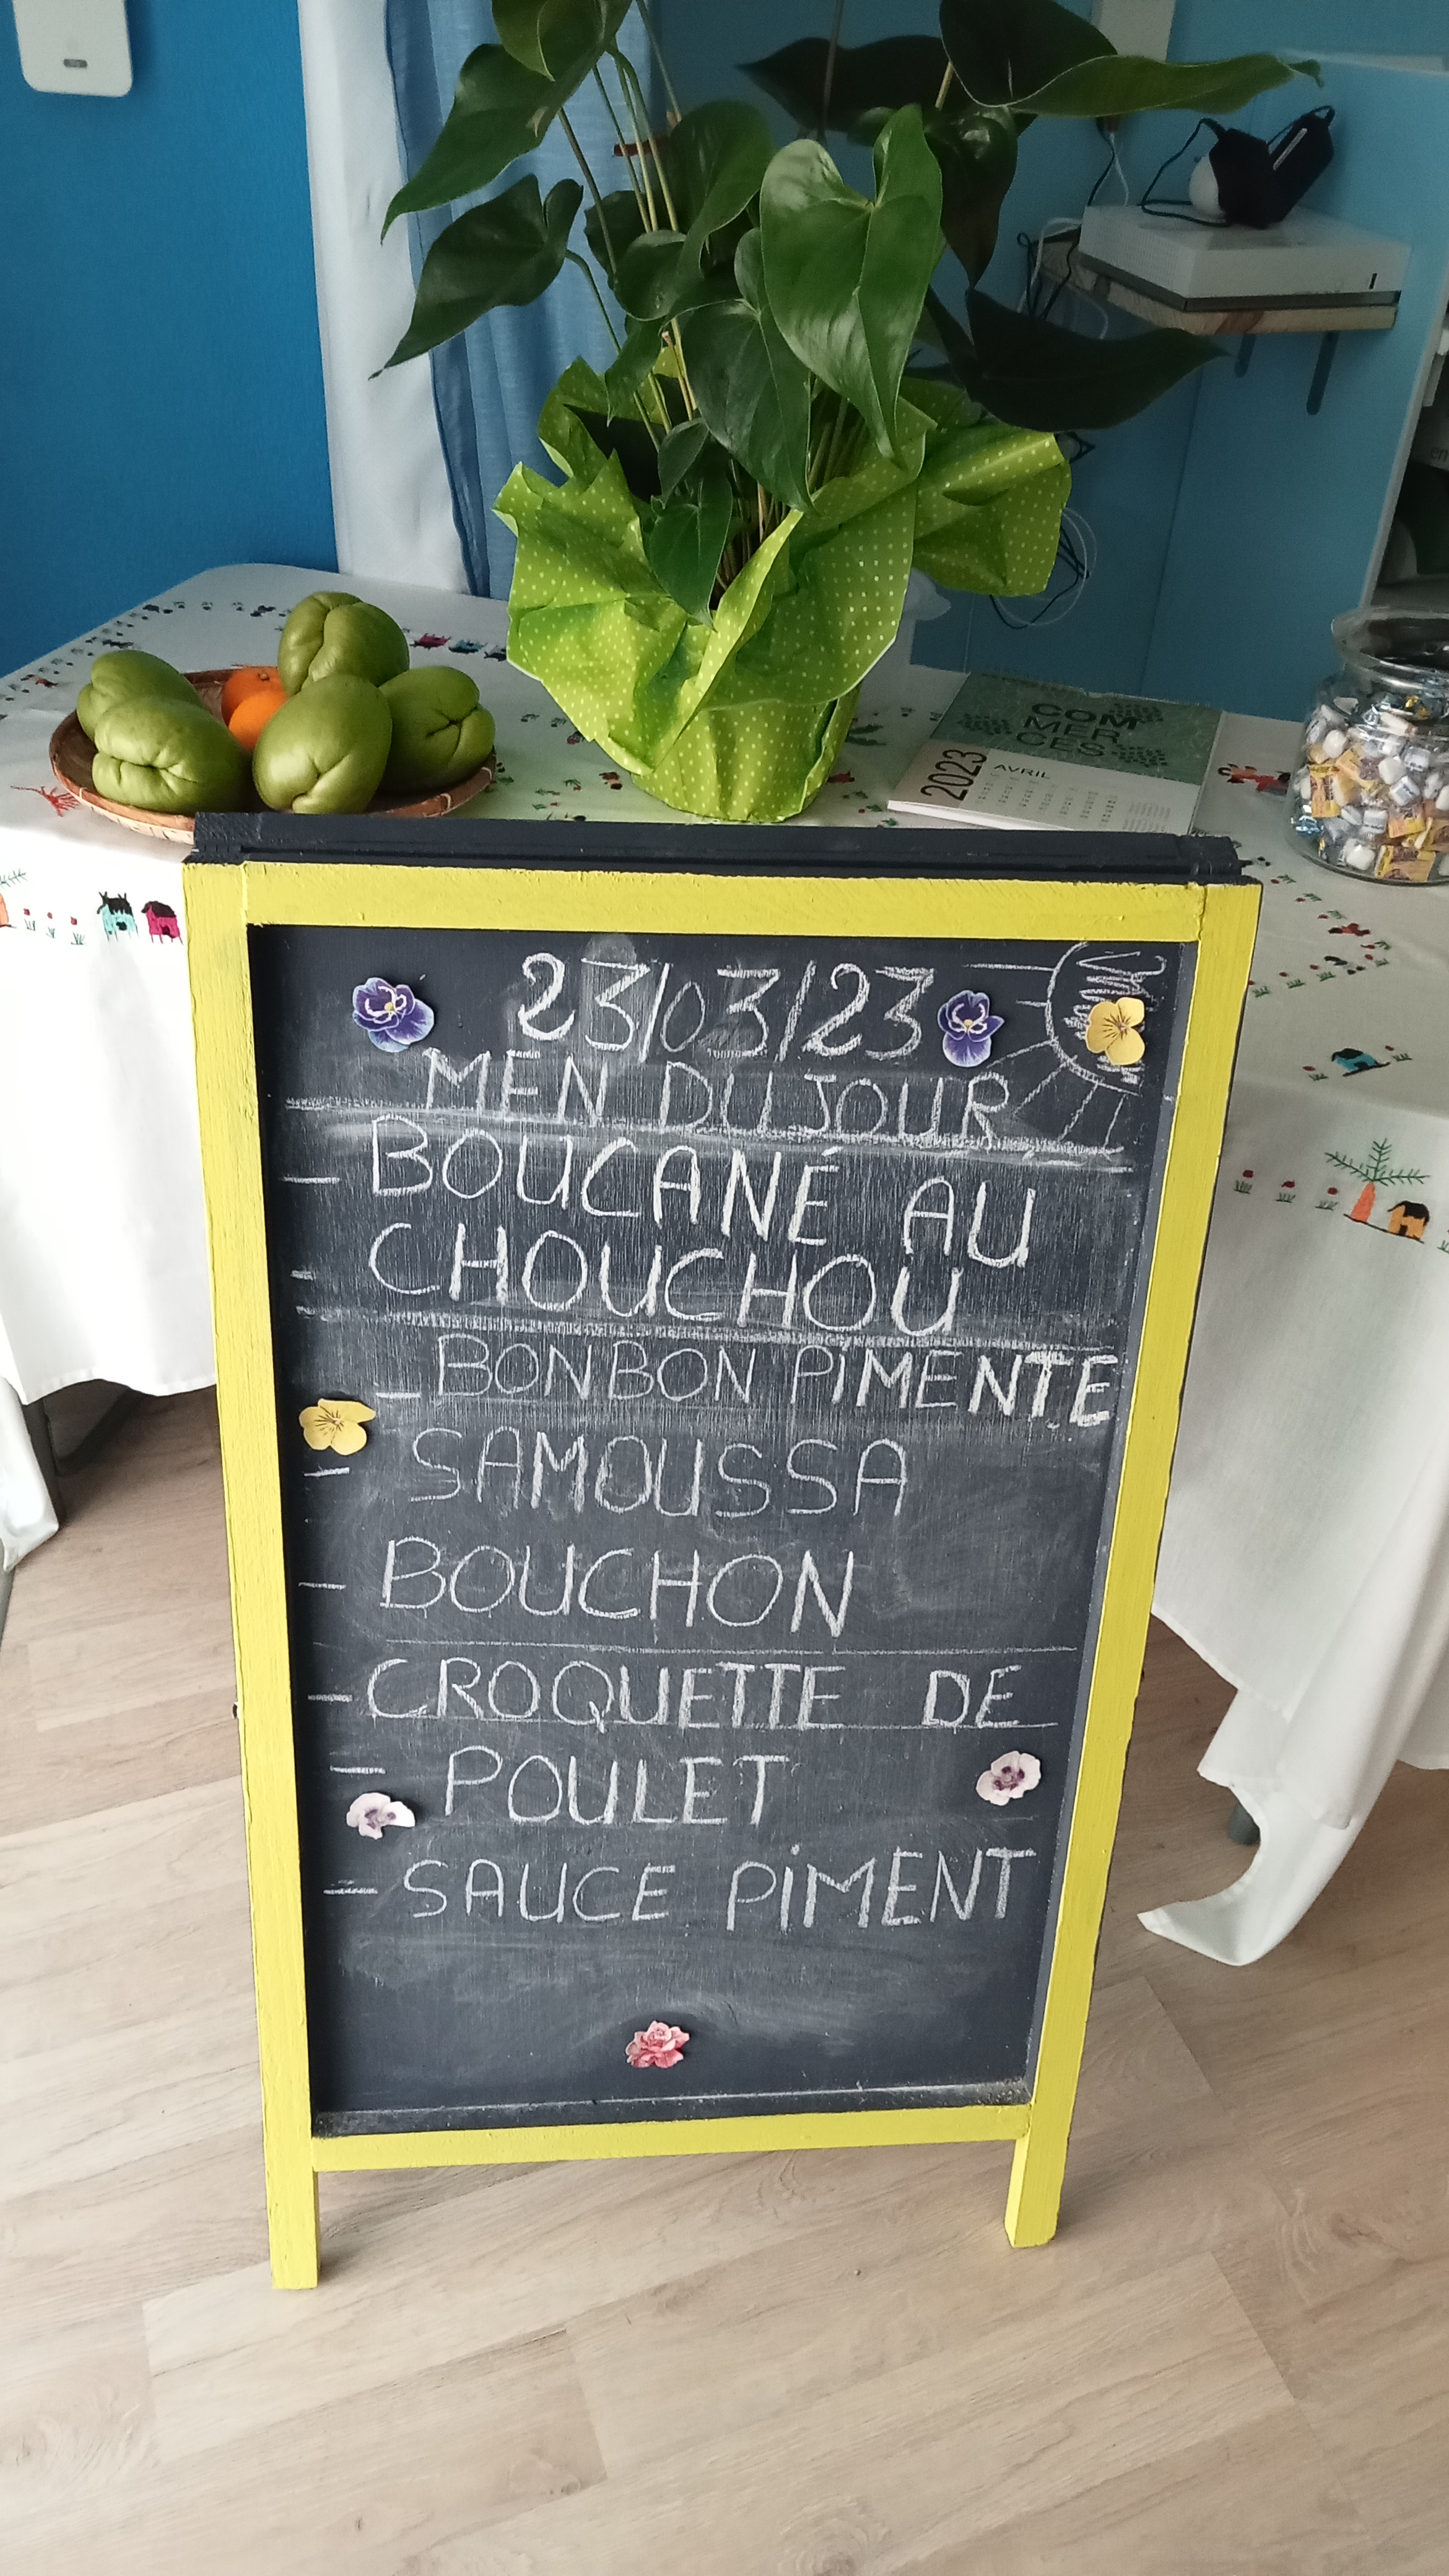 COM
MER
CES
2023
AVRIL
23/03/23
MEN DU JOUR
BOUCANÉ AU
CHOUCHOU
- BONBON PIMENTE
- SAMOUSSA
- BOUCHON
- CROQUETTE DE
- POULET
- SAUCE PIMENT